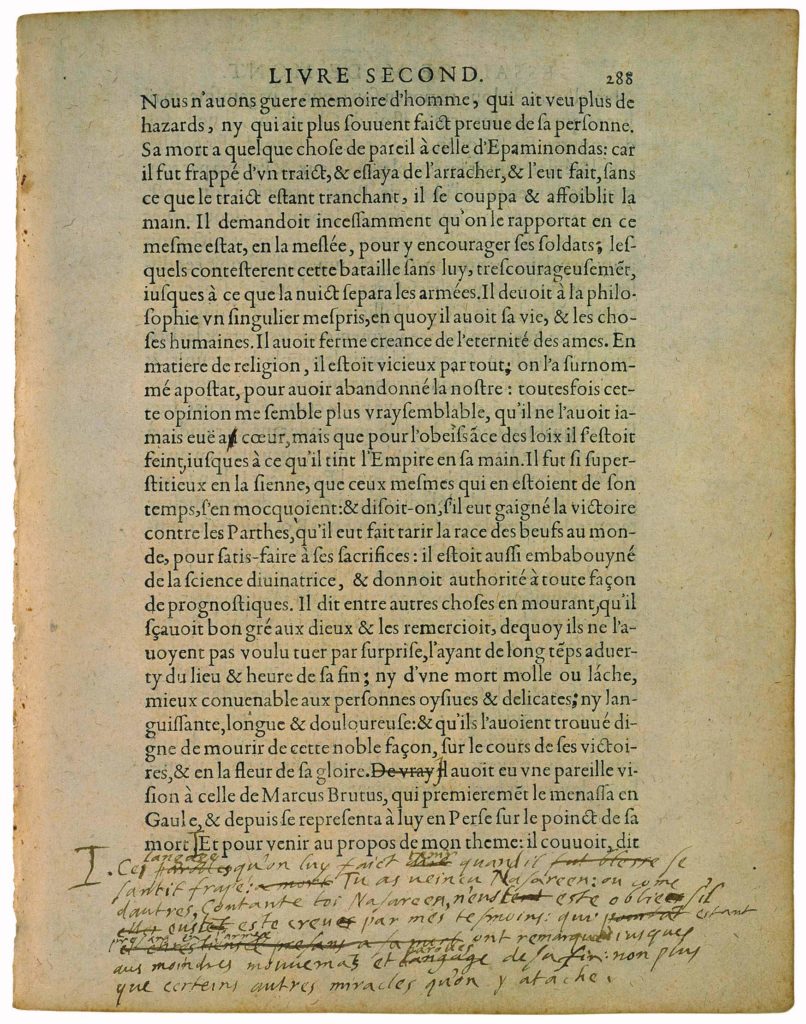 LIVRE SECOND. 288
Nous n'auons guere memoire d'homme, qui ait veu plus de
hazards, ny qui ait plus ſouuent faict preuue de ſa perſonne.
Sa mort a quelque choſe de pareil à celle d'Epaminondas: car
il fut frappé d'vn traict, & eſſaya de l'arracher, & l'eut fait, ſans
ce que le traict eſtant tranchant, il ſe couppa & affoiblit la
main. Il demandoit inceſſamment qu'on le rapportat en ce
meſme eſtat, en la meſlée, pour y encourager ſes ſoldats; leſ-
quels conteſterent cette bataille ſans luy, trescourageuſemẽt,
iuſques à ce que la nuict ſepara les armées. Il deuoit à la philo-
ſophie vn ſingulier meſpris, en quoy il auoit ſa vie, & les cho-
ſes humaines. Il auoit ferme creance de l'eternité des ames. En
matiere de religion, il eſtoit vicieux par tout; on l'a ſurnom-
mé apoſtat, pour auoir abandonné la noſtre: toutesfois cet-
te opinion me ſemble plus vrayſemblable, qu'il ne l'auoit ia-
mais euë a cœur, mais que pour l'obeïſſãce des loix il s'eſtoit
feint, iuſques à ce qu'il tint l'Empire en ſa main. Il fut ſi ſuper-
ſtitieux en la ſienne, que ceux meſmes qui en eſtoient de ſon
temps, s'en mocquoient: & diſoit-on, s'il eut gaigné la victoire
contre les Parthes, qu'il eut fait tarir la race des beufs au mon-
de, pour ſatis-faire à ſes ſacrifices: il eſtoit auſſi embabouyné
de la ſcience diuinatrice, & donnoit authorité à toute façon
de prognoſtiques. Il dit entre autres choſes en mourant, qu'il
ſçauoit bon gré aux dieux & les remercioit, dequoy ils ne l'a-
uoyent pas voulu tuer par ſurpriſe, l'ayant de long tẽps aduer-
ty du lieu & heure de ſa fin; ny d'vne mort molle ou láche,
mieux conuenable aux perſonnes oyſiues & delicates; ny lan-
guiſſante, longue & douloureuſe: & qu'ils l'auoient trouué di-
gne de mourir de cette noble façon, ſur le cours de ſes victoi-
res, & en la fleur de ſa gloire. De vray Il auoit eu vne pareille vi-
ſion à celle de Marcus Brutus, qui premieremẽt le menaſſa en
Gaule, & depuis ſe repreſenta à luy en Perſe ſur le poinct de ſa
mort Et pour venir au propos de mon theme: il couuoit, dit
langage
I. Ces paroles qu'on luy faict quand il fut blesse se
santit frape: a mort Tu as veincu Nasareen: ou come
d'autres, Contante toi Nasareen, n'eust este obliees s'il
eust este creues par mes tesmoins: qui estant
ont remarque iusques
aus moindres mouuemãs et langage paroles de sa fin: non plus
que certeins autres miracles qu'on y atache.